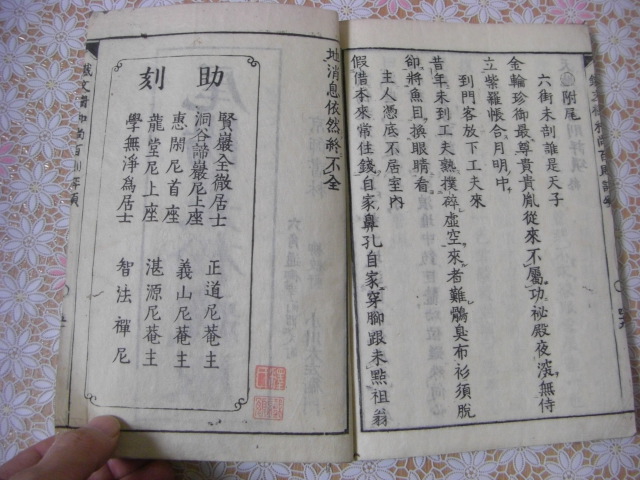 附尾
六街未剖誰是天子
金輪珍御最尊貴貴胤從來不屬功祕殿夜濱無侍
立紫羅帳合月明中
到門客放下工夫來
昔年未到工夫熟撲碎虛空來者難鶻臭布衫須脫
卻將魚目換眼睛看
主人憑底不居室內
假借本來常住錢自家鼻孔自家穿腳跟未點祖翁
地消息依然終不全
助刻
賢巖全徹居士
洞谷諦巖尼上座
惠閑尼首座
龍堂尼上座
學無淨為居士
正道尼菴主
義山尼菴主
湛源尼菴主
智法禪尼